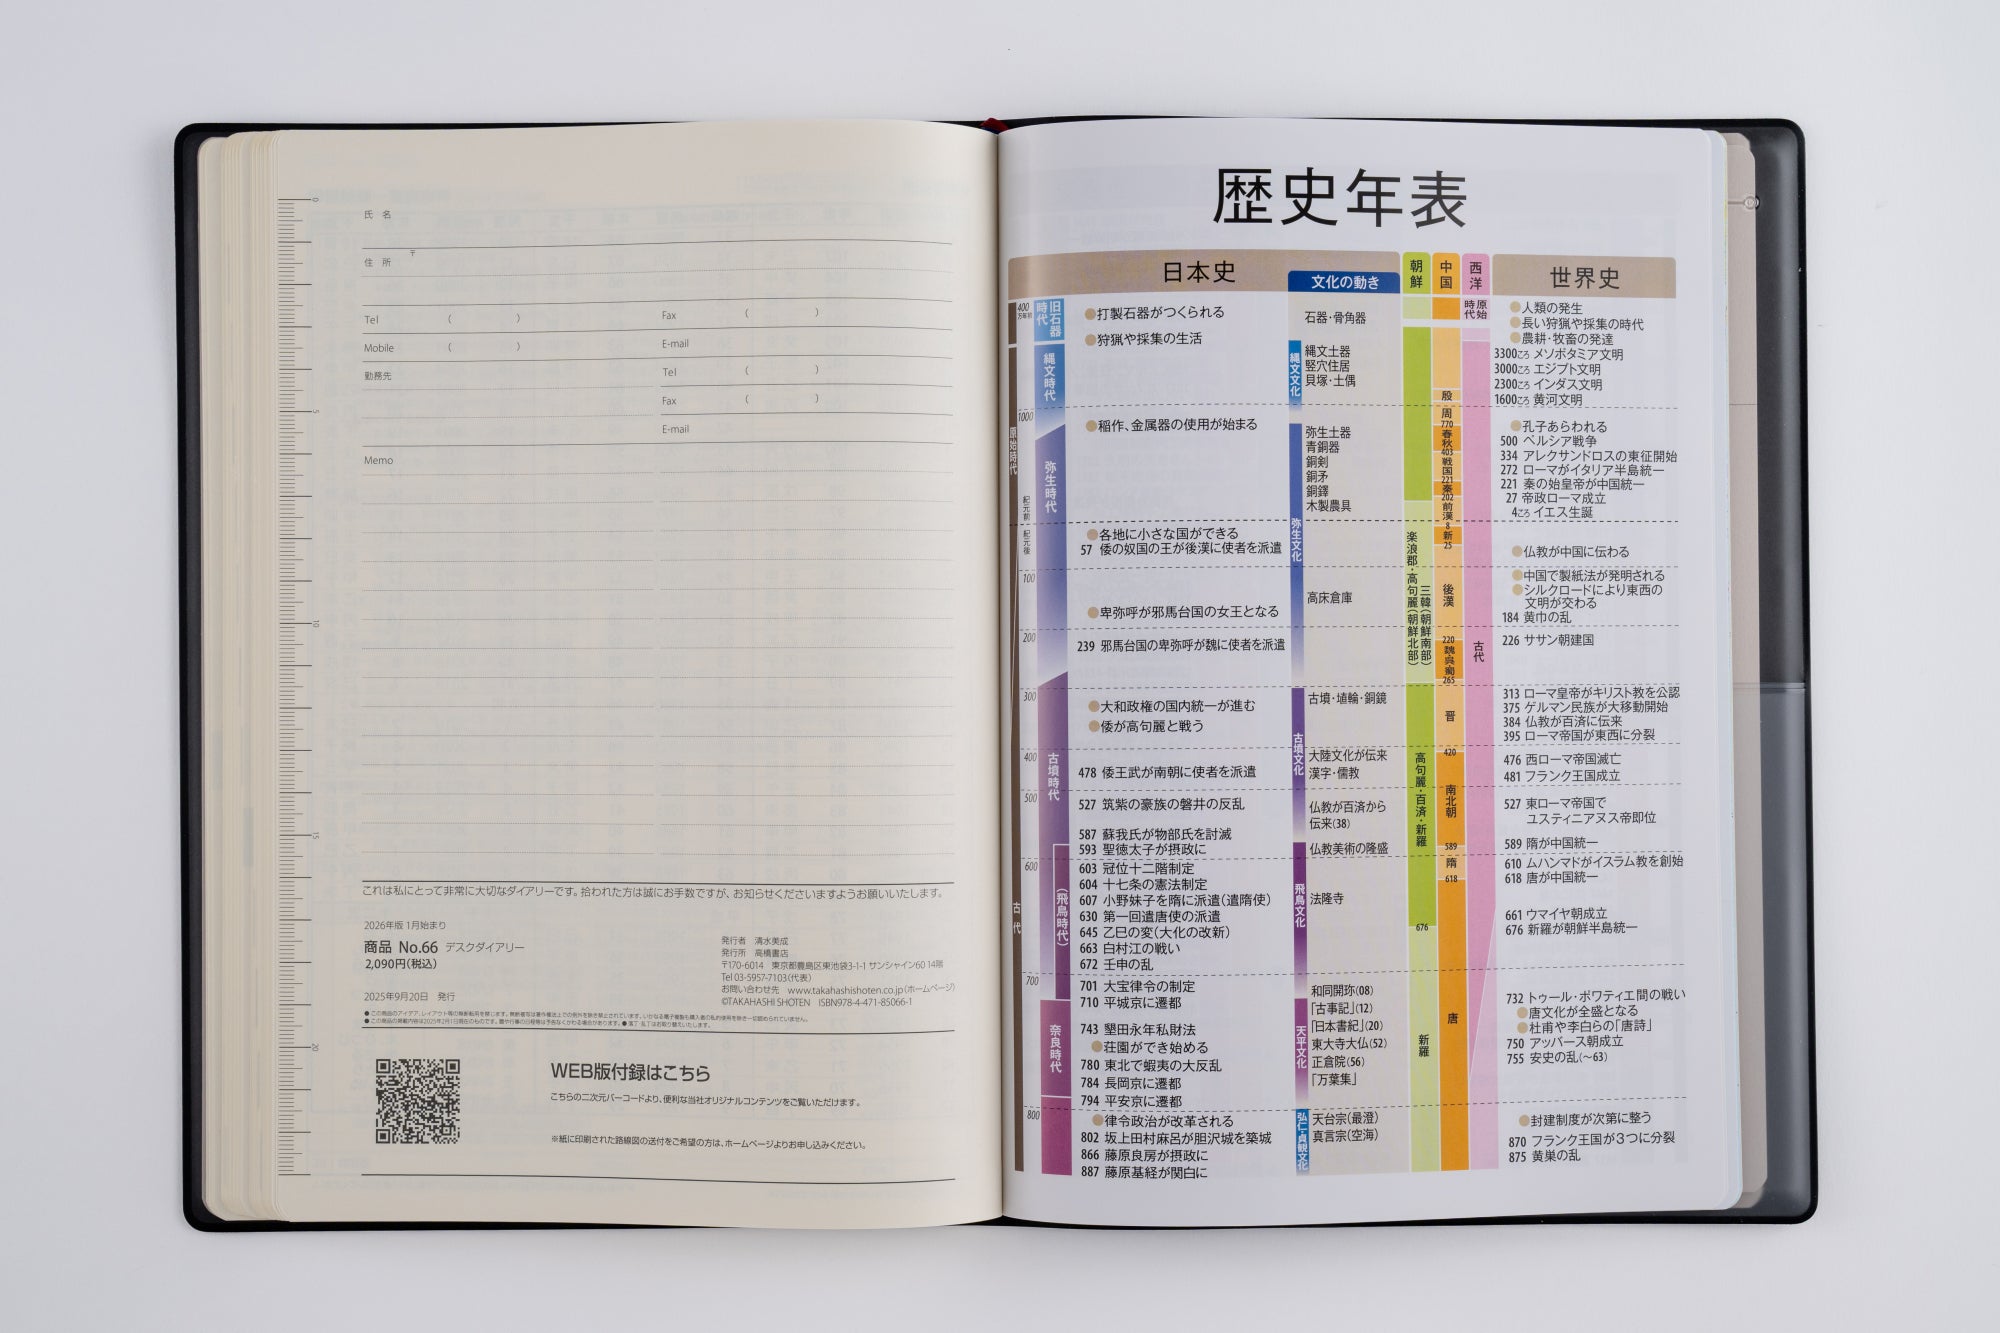 氏 名
〒
住 所
Tel ( )
Fax ( )
Mobile ( )
E-mail
勤務先
Tel ( )
Fax ( )
E-mail
Memo
0
5
10
15
20
これは私にとって非常に大切なダイアリーです。拾われた方は誠にお手数ですが、お知らせくださいますようお願いいたします。
2026年版 1月始まり
商品 No.66 デスクダイアリー
2,090円(税込)
2025年9月20日 発行
発行者 清水美成
発行所 高橋書店
〒170-6014 東京都豊島区東池袋3-1-1 サンシャイン60 14階
Tel 03-5957-7103(代表)
お問い合わせ先 www.takahashishoten.co.jp(ホームページ)
©TAKAHASHI SHOTEN ISBN978-4-471-85066-1
WEB版付録はこちら
こちらの二次元バーコードより、便利な当社オリジナルコンテンツをご覧いただけます。
※紙に印刷された路線図の送付をご希望の方は、ホームページよりお申し込みください。
歴史年表
日本史
文化の動き
朝鮮
中国
西洋
世界史
400万年前
1000
紀元前
紀元後
100
200
300
400
500
600
700
800
原始時代
古代
旧石器時代
縄文時代
弥生時代
古墳時代
(飛鳥時代)
奈良時代
●打製石器がつくられる
●狩猟や採集の生活
●稲作、金属器の使用が始まる
●各地に小さな国ができる
57 倭の奴国の王が後漢に使者を派遣
●卑弥呼が邪馬台国の女王となる
239 邪馬台国の卑弥呼が魏に使者を派遣
●大和政権の国内統一が進む
●倭が高句麗と戦う
478 倭王武が南朝に使者を派遣
527 筑紫の豪族の磐井の反乱
587 蘇我氏が物部氏を討滅
593 聖徳太子が摂政に
603 冠位十二階制定
604 十七条の憲法制定
607 小野妹子を隋に派遣(遣隋使)
630 第一回遣唐使の派遣
645 乙巳の変(大化の改新)
663 白村江の戦い
672 壬申の乱
701 大宝律令の制定
710 平城京に遷都
743 墾田永年私財法
●荘園ができ始める
780 東北で蝦夷の大反乱
784 長岡京に遷都
794 平安京に遷都
●律令政治が改革される
802 坂上田村麻呂が胆沢城を築城
866 藤原良房が摂政に
887 藤原基経が関白に
縄文文化
弥生文化
古墳文化
飛鳥文化
天平文化
弘仁・貞観文化
石器・骨角器
縄文土器
竪穴住居
貝塚・土偶
弥生土器
青銅器
銅剣
銅矛
銅鐸
木製農具
高床倉庫
古墳・埴輪・銅鏡
大陸文化が伝来
漢字・儒教
仏教が百済から
伝来(38)
仏教美術の隆盛
法隆寺
和同開珎(08)
「古事記」(12)
「日本書紀」(20)
東大寺大仏(52)
正倉院(56)
「万葉集」
天台宗(最澄)
真言宗(空海)
楽浪郡・高句麗(朝鮮北部)
三韓(朝鮮南部)
高句麗・百済・新羅
676
新羅
殷
周
770
春秋
403
戦国
221
秦
202
前漢
8
新
25
後漢
220
魏・呉・蜀
265
晋
420
南北朝
589
隋
618
唐
原始時代
古代
●人類の発生
●長い狩猟や採集の時代
●農耕・牧畜の発達
3300ころ メソポタミア文明
3000ころ エジプト文明
2300ころ インダス文明
1600ころ 黄河文明
●孔子あらわれる
500 ペルシア戦争
334 アレクサンドロスの東征開始
272 ローマがイタリア半島統一
221 秦の始皇帝が中国統一
27 帝政ローマ成立
4ころ イエス生誕
●仏教が中国に伝わる
●中国で製紙法が発明される
●シルクロードにより東西の
文明が交わる
184 黄巾の乱
226 ササン朝建国
313 ローマ皇帝がキリスト教を公認
375 ゲルマン民族が大移動開始
384 仏教が百済に伝来
395 ローマ帝国が東西に分裂
476 西ローマ帝国滅亡
481 フランク王国成立
527 東ローマ帝国で
ユスティニアヌス帝即位
589 隋が中国統一
610 ムハンマドがイスラム教を創始
618 唐が中国統一
661 ウマイヤ朝成立
676 新羅が朝鮮半島統一
732 トゥール・ポワティエ間の戦い
●唐文化が全盛となる
●杜甫や李白らの「唐詩」
750 アッバース朝成立
755 安史の乱(〜63)
●封建制度が次第に整う
870 フランク王国が3つに分裂
875 黄巣の乱